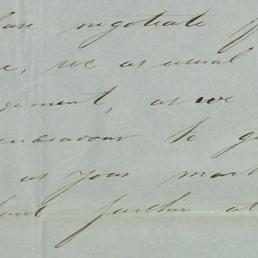 negotiate
, we as usual
gement, as we
endeavour to g
as your mark
further at